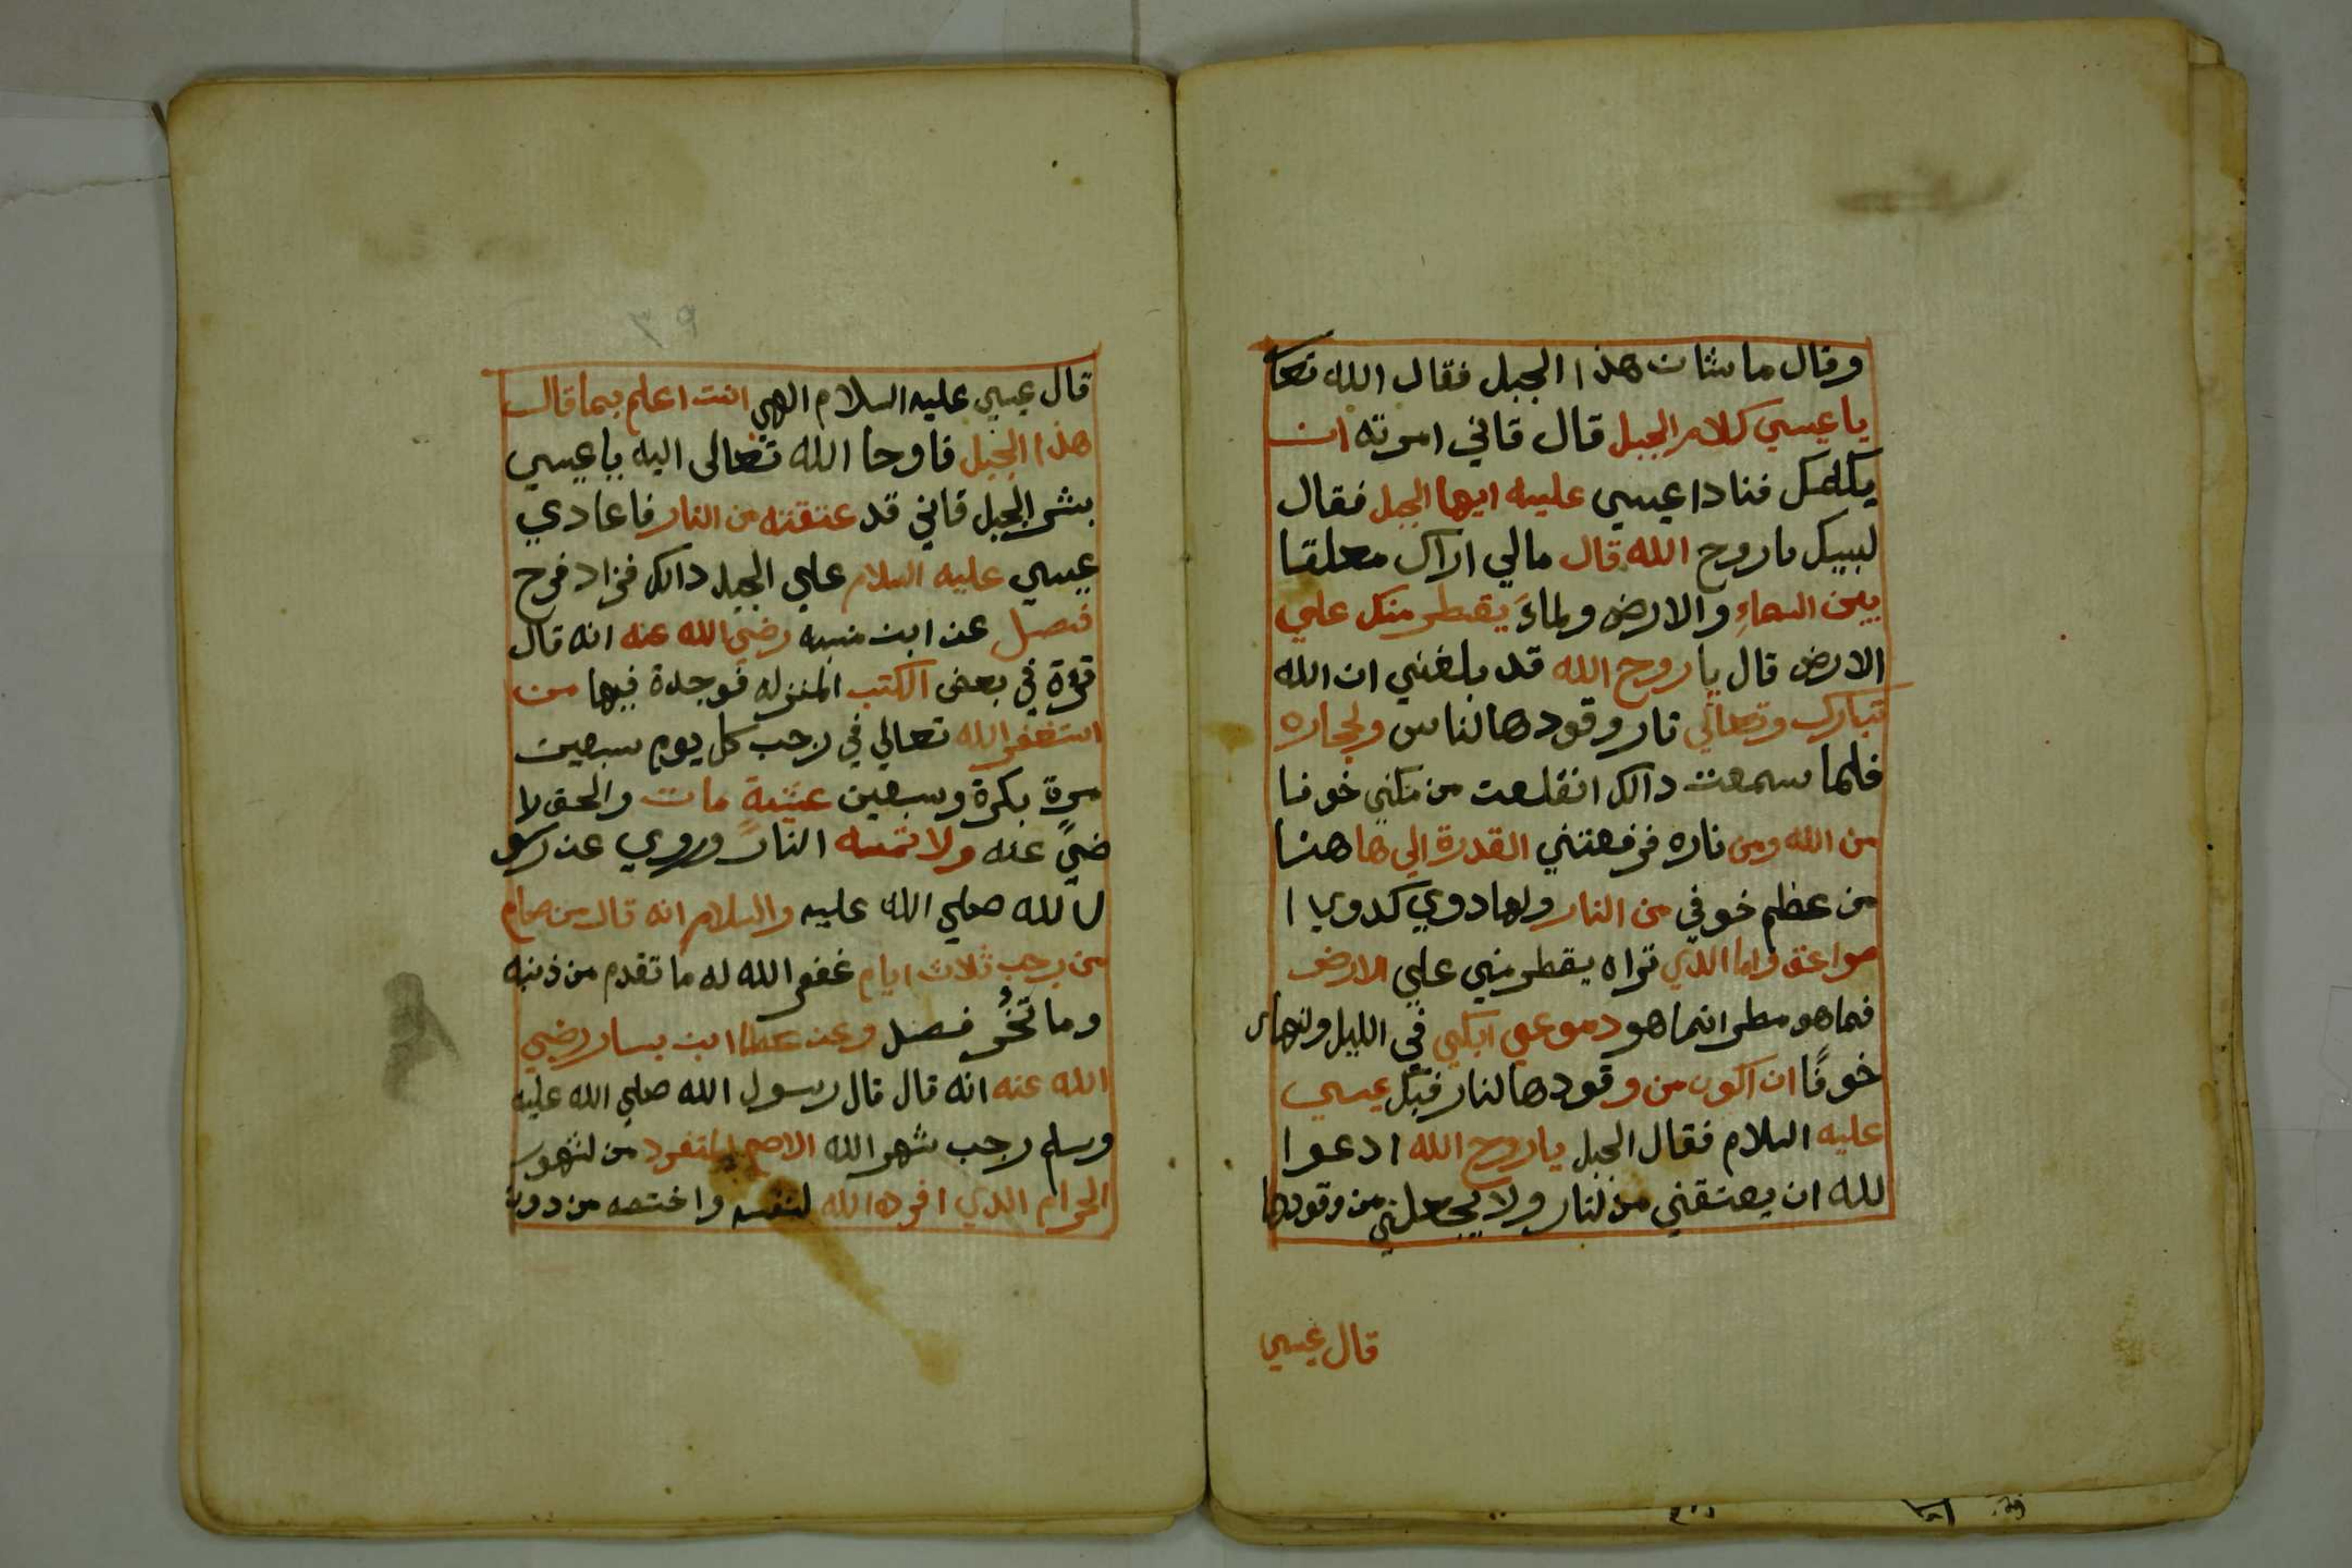 وقال ما شان هذا الجبل فقال الله تعا
يا عيسي كلام الجبل قال قاني امرته ان
يكلمك فنادا عيسي عليه ايها الجبل فقال
لبيك يا روح الله قال مالي اراك معلقا
بين السماءِ والارض ولماءَ يقطر منك علي
الارض قال يا روح الله قد بلغني ان الله
تبارك وتعالي نار وقودها لناس ولحجاره
فلما سمعت دالك انقلعت من مكني خوفا
من الله ومن ناره فرفعتني القدرة الي هاهنا
من عظم خوفي من النار ولها دوي كدوي ا
صواعق واما اللدي تراه يقطر مني علي الارض
فما هو مطر انما هو دموعي ابكي في الليل ولنهار
خوفًا ان اكون من وقودها لنار فبكل عيسي
عليه السلام فقال الجبل يا روح الله ادعوا
لله ان يعتقني من لنار ولا يجعلني من وقودها
قال عيسي
قال عيسي عليه السلام الهي انت اعلم بما قال
هذا الجبل فاوحا الله تعالى اليه يا عيسي
بشر الجبل قاني قد عتقته من النار فاعادي
عيسي عليه السلام علي الجبل دالك فزاد فرح
فصل عن ابن منبه رضي الله عنه انه قال
قرءة في بعض الكتب المنزله فوجدة فيها من
استغفر الله تعالي في رجب كل يوم سبعين
مرة بكرة وسبعين عشية مات والحق لا
ضيً عنه ولا تمسه النار وروي عن رسو
ل الله صلي الله عليه والسلام انه قال من صام
من رجب ثلاث ايام غفر الله له ما تقدم من ذنبه
وما تخُر فصل وعن عطا ابن يسار رضي
الله عنه انه قال قال رسول الله صلي الله عليه
وسلم رجب شهر الله الاصم المتفرد من لشهور
الحرام اللدي افرده الله لنفسه واختصه من دون